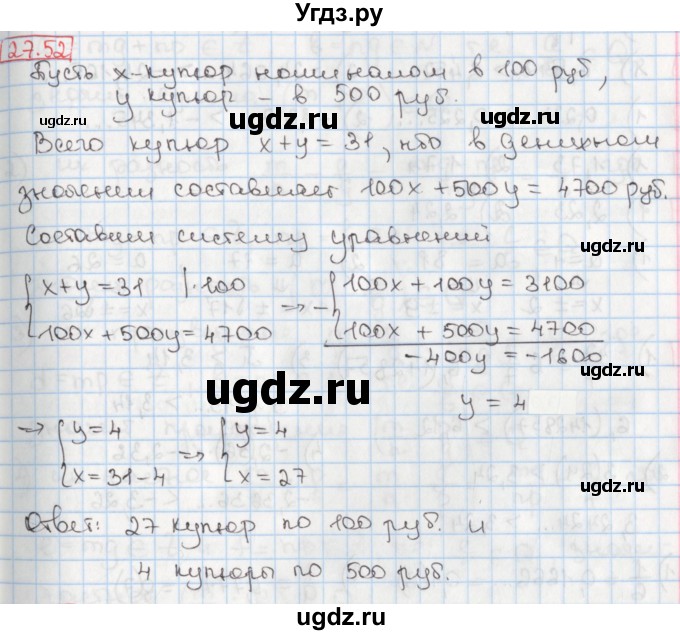 Угдз.ру
27.52
Пусть x-купюр номиналом в 100 руб,
y купюр - в 500 руб.
ugdz.ru
ugdz.ru
ugdz.ru
Всего купюр x+y=31, что в денижном
значении составляет 100x+500y=4700 руб.
Составим систему уравнений
ugdz.ru
{ x+y=31 |·100
100x+500y=4700
=> - { 100x+100y=3100
100x+500y=4700
-400y=-1600
ugdz.ru
ugdz.ru
y=4
=> { y=4
x=31-4
=> { y=4
x=27
ugdz.ru
Ответ: 27 купюр по 100 руб. и
4 купюры по 500 руб.
ugdz.ru
ugdz.ru
ugdz.ru